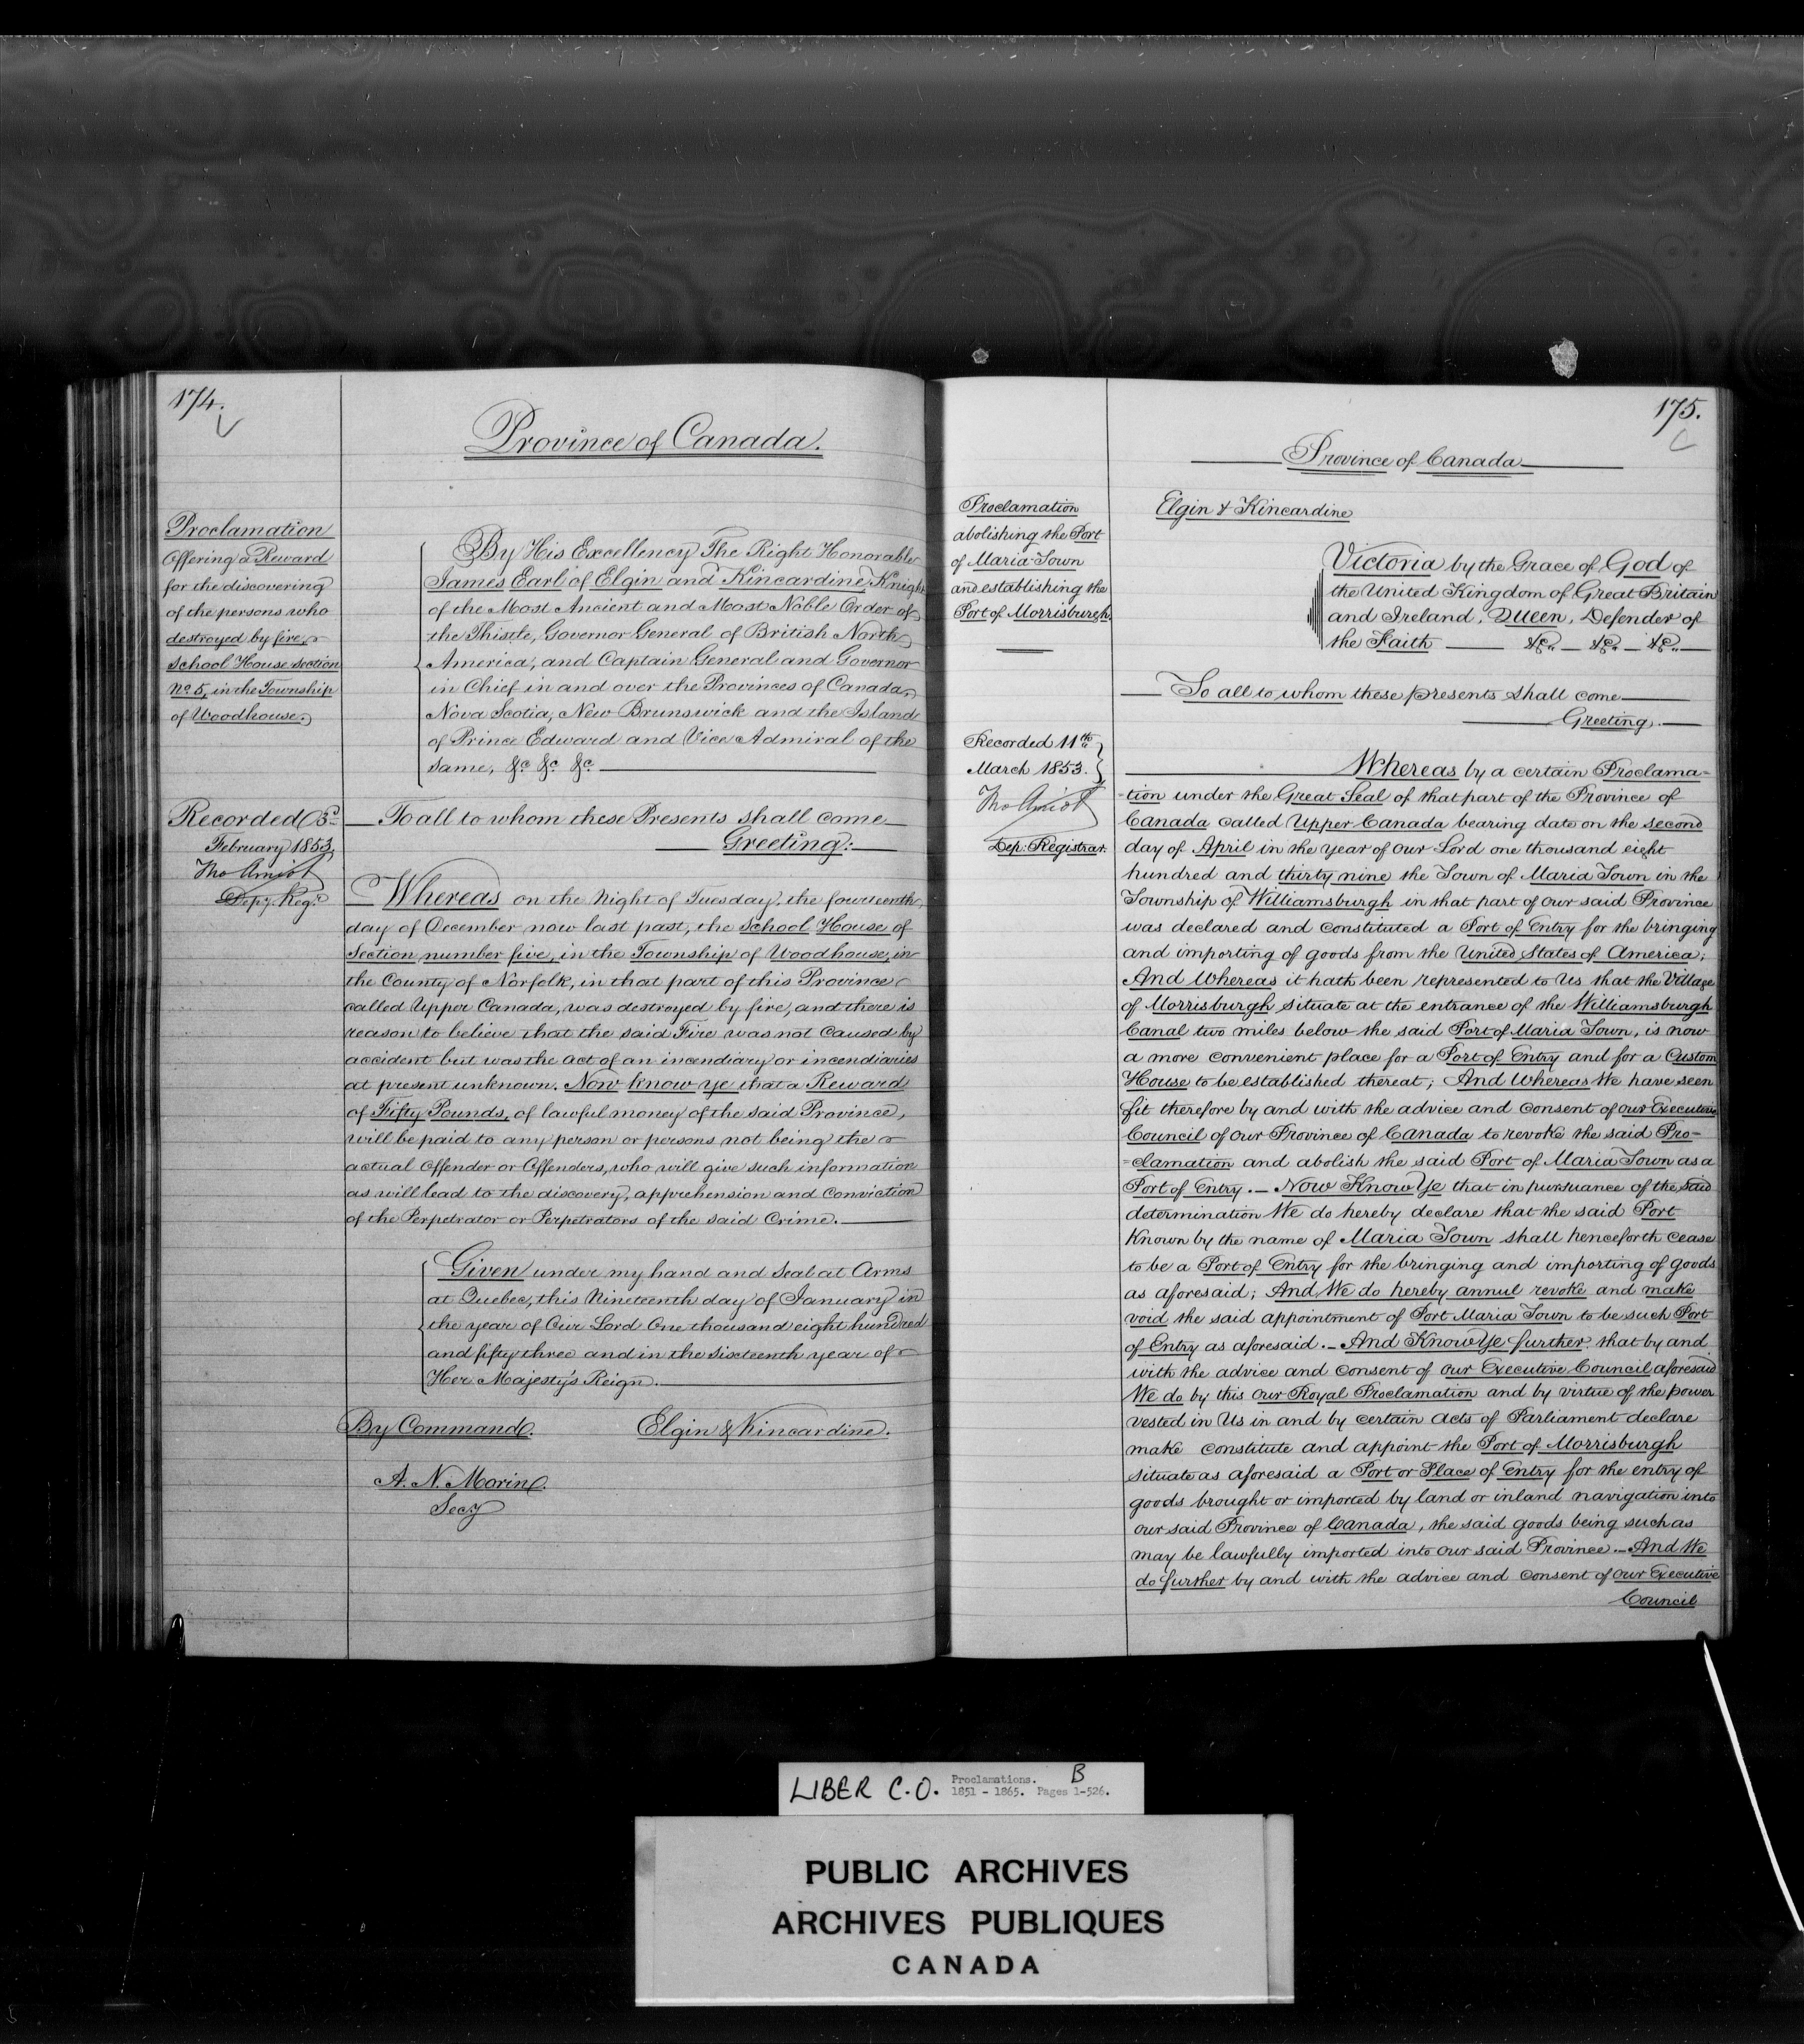 174.
Province of Canada.
Proclamation
Offering a Reward
for the discovering
of the persons who
destroyed by fire,
School House section
No. 5, in the Township
of Woodhouse.
Recorded
February 1853.
Tho Amiot
Depy. Reg.
By His Excellency The Right Honorable
James Earl of Elgin and Kincardine, Knight
of the Most Ancient and Most Noble Order of
the Thistle, Governor General of British North
America, and Captain General and Governor
in Chief in and over the Provinces of Canada,
Nova Scotia, New Brunswick and the Island
of Prince Edward and Vice Admiral of the
same, &c &c &c
To all to whom these Presents shall come
Greeting:
Whereas on the Night of Tuesday, the fourteenth
day of December now last past, the School House of
Section number five, in the Township of Woodhouse, in
the County of Norfolk, in that part of this Province
called Upper Canada, was destroyed by fire, and there is
reason to believe that the said Fire was not caused by
accident but was the act of an incendiary or incendiaries
at present unknown. Now know ye that a Reward
of Fifty Pounds, of lawful money of the said Province,
will be paid to any person or persons not being the
actual Offender or Offenders, who will give such information
as will lead to the discovery, apprehension and conviction
of the Perpetrator or Perpetrators of the said Crime.
Given under my hand and Seal at Arms
at Quebec, this Nineteenth day of January in
the year of Our Lord One thousand eight hundred
and fifty three and in the sixteenth year of
Her Majesty's Reign.
By Command.
Elgin & Kincardine.
A. N. Morin.
Secy
175.
Province of Canada
Proclamation
abolishing the Port
of Maria-Town
and establishing the
Port of Morrisburgh.
Recorded 11th
March 1853.
Tho Amiot
Dep: Registrar.
Elgin & Kincardine
Victoria by the Grace of God of
the United Kingdom of Great Britain
and Ireland, Queen, Defender of
the Faith — &c. — &c. — &c. —
To all to whom these presents shall come
Greeting.
Whereas by a certain Proclama-
-tion under the Great Seal of that part of the Province of
Canada called Upper Canada bearing date on the second
day of April in the year of our Lord one thousand eight
hundred and thirty nine the Town of Maria Town in the
Township of Williamsburgh in that part of our said Province
was declared and constituted a Port of Entry for the bringing
and importing of goods from the United States of America;
And Whereas it hath been represented to Us that the Village
of Morrisburgh situate at the entrance of the Williamsburgh
Canal two miles below the said Port of Maria Town, is now
a more convenient place for a Port of Entry and for a Custom
House to be established thereat; And Whereas We have seen
fit therefore by and with the advice and consent of our Executive
Council of our Province of Canada to revoke the said Pro-
=clamation and abolish the said Port of Maria Town as a
Port of Entry. — Now Know Ye that in pursuance of the said
determination We do hereby declare that the said Port
Known by the name of Maria Town shall henceforth cease
to be a Port of Entry for the bringing and importing of goods
as aforesaid; And We do hereby annul revoke and make
void the said appointment of Port Maria Town to be such Port
of Entry as aforesaid. — And Know Ye further that by and
with the advice and consent of our Executive Council aforesaid
We do by this Our Royal Proclamation and by virtue of the power
vested in Us in and by certain acts of Parliament declare
make constitute and appoint the Port of Morrisburgh
situate as aforesaid a Port or Place of Entry for the entry of
goods brought or imported by land or inland navigation into
our said Province of Canada, the said goods being such as
may be lawfully imported into our said Province. — And We
do further by and with the advice and consent of our Executive
Council
LIBER C.O. Proclamations. B
1851 - 1865. Pages 1-526.
PUBLIC ARCHIVES
ARCHIVES PUBLIQUES
CANADA